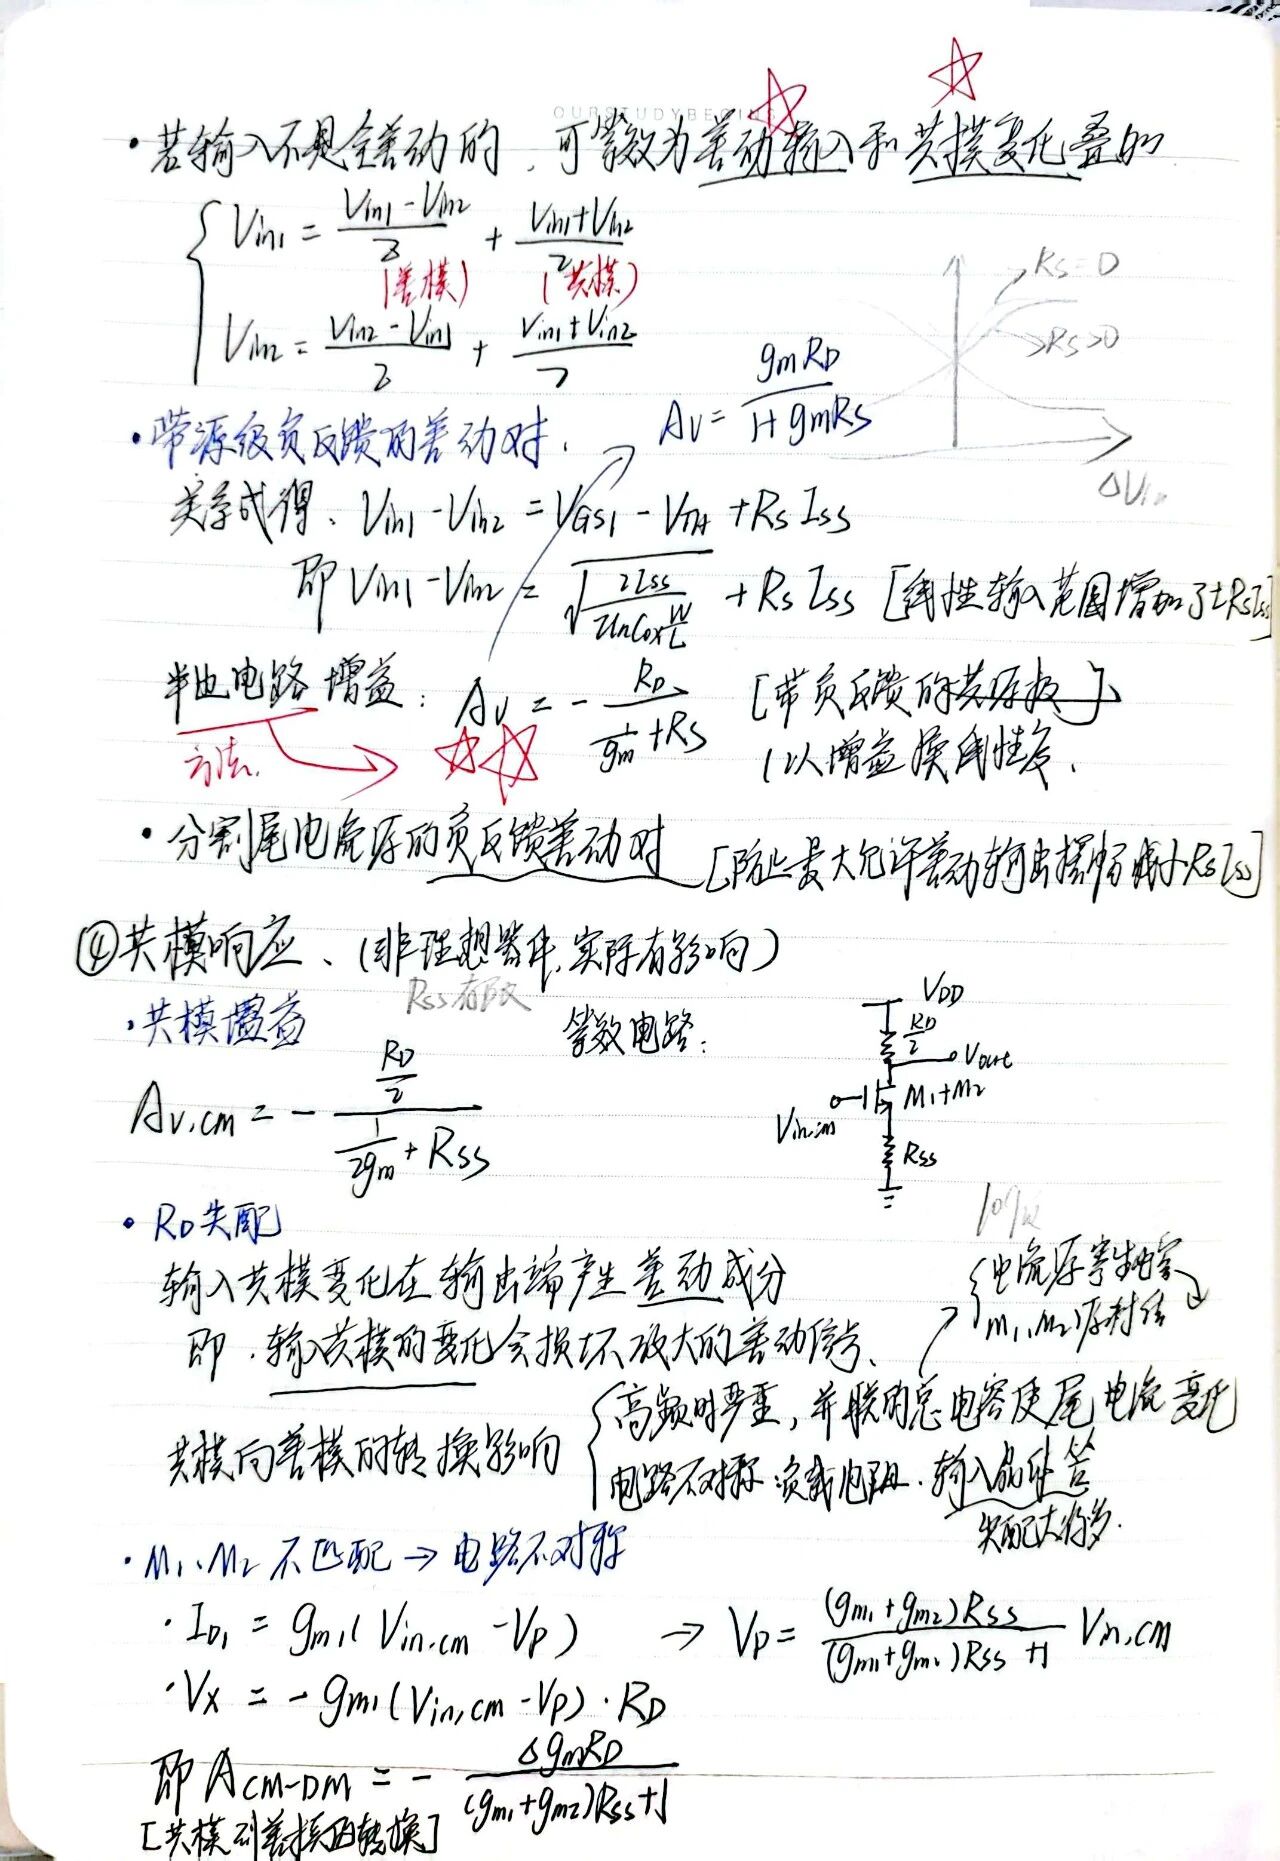 OURSTUDYBEGINS
· 若输入不是全差动的，可等效为差动输入和共模变化叠加
Vin1 = (Vin1 - Vin2)/2 + (Vin1 + Vin2)/2
(差模) (共模)
Vin2 = (Vin2 - Vin1)/2 + (Vin1 + Vin2)/2
Rs=0
Rs>0
ΔVin
· 带源级负反馈的差动对.
Av = gmRD/(1+gmRs)
关系式得、Vin1 - Vin2 = VGS1 - VTH + Rs Iss
即 Vin1 - Vin2 = √(2Iss/(UnCox W/L)) + Rs Iss [线性输入范围增加了±RsIss]
半边电路增益: Av = - RD/(1/gm + Rs) [带负反馈的共源极]
方法.
(以增益换线性度.
· 分割尾电流源的负反馈差动对 [防止最大允许差动输出摆幅减小RsIss]
④共模响应、(非理想器件,实际有影响)
Rss有限
· 共模增益
等效电路:
VDD
RD/2
Vout
M1+M2
Vin.cm
Rss
Av.cm = - (RD/2)/(1/2gm + Rss)
· RD失配
输入共模变化在输出端产生差动成分
即.输入共模的变化会损坏放大的差动信号、
电流源寄生电容
M1、M2源衬结
共模向差模的转换影响
高频时严重，并联的总电容使尾电流变化
电路不对称:负载电阻.输入晶体管
失配大得多.
· M1、M2 不匹配 → 电路不对称
· ID1 = gm1(Vin.cm - Vp) → Vp = (gm1+gm2)Rss/((gm1+gm2)Rss+1) Vin,cm
· Vx = - gm1(Vin,cm - Vp)·RD
即 ACM-DM = - ΔgmRD/((gm1+gm2)Rss+1)
[共模到差模的转换]